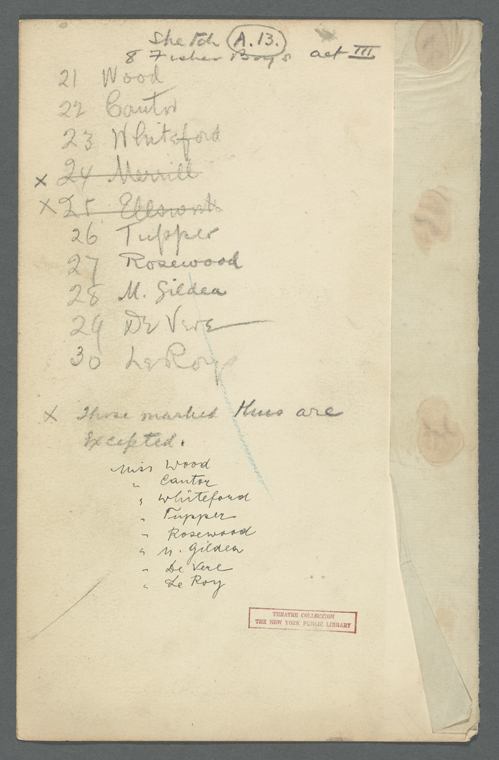 Sketch A.13.
8 Fisher Boys act III
21 Wood
22 Cantor
23 Whiteford
x 24 Merrill
x 25 Ellsworth
26 Tupper
27 Rosewood
28 M. Gildea
29 De Vere
30 LeRoy
x Those marked thus are
Excepted.
Miss Wood
" Cantor
" Whiteford
" Tupper
" Rosewood
" M. Gildea
" De Vere
" Le Roy
THEATRE COLLECTION
THE NEW YORK PUBLIC LIBRARY